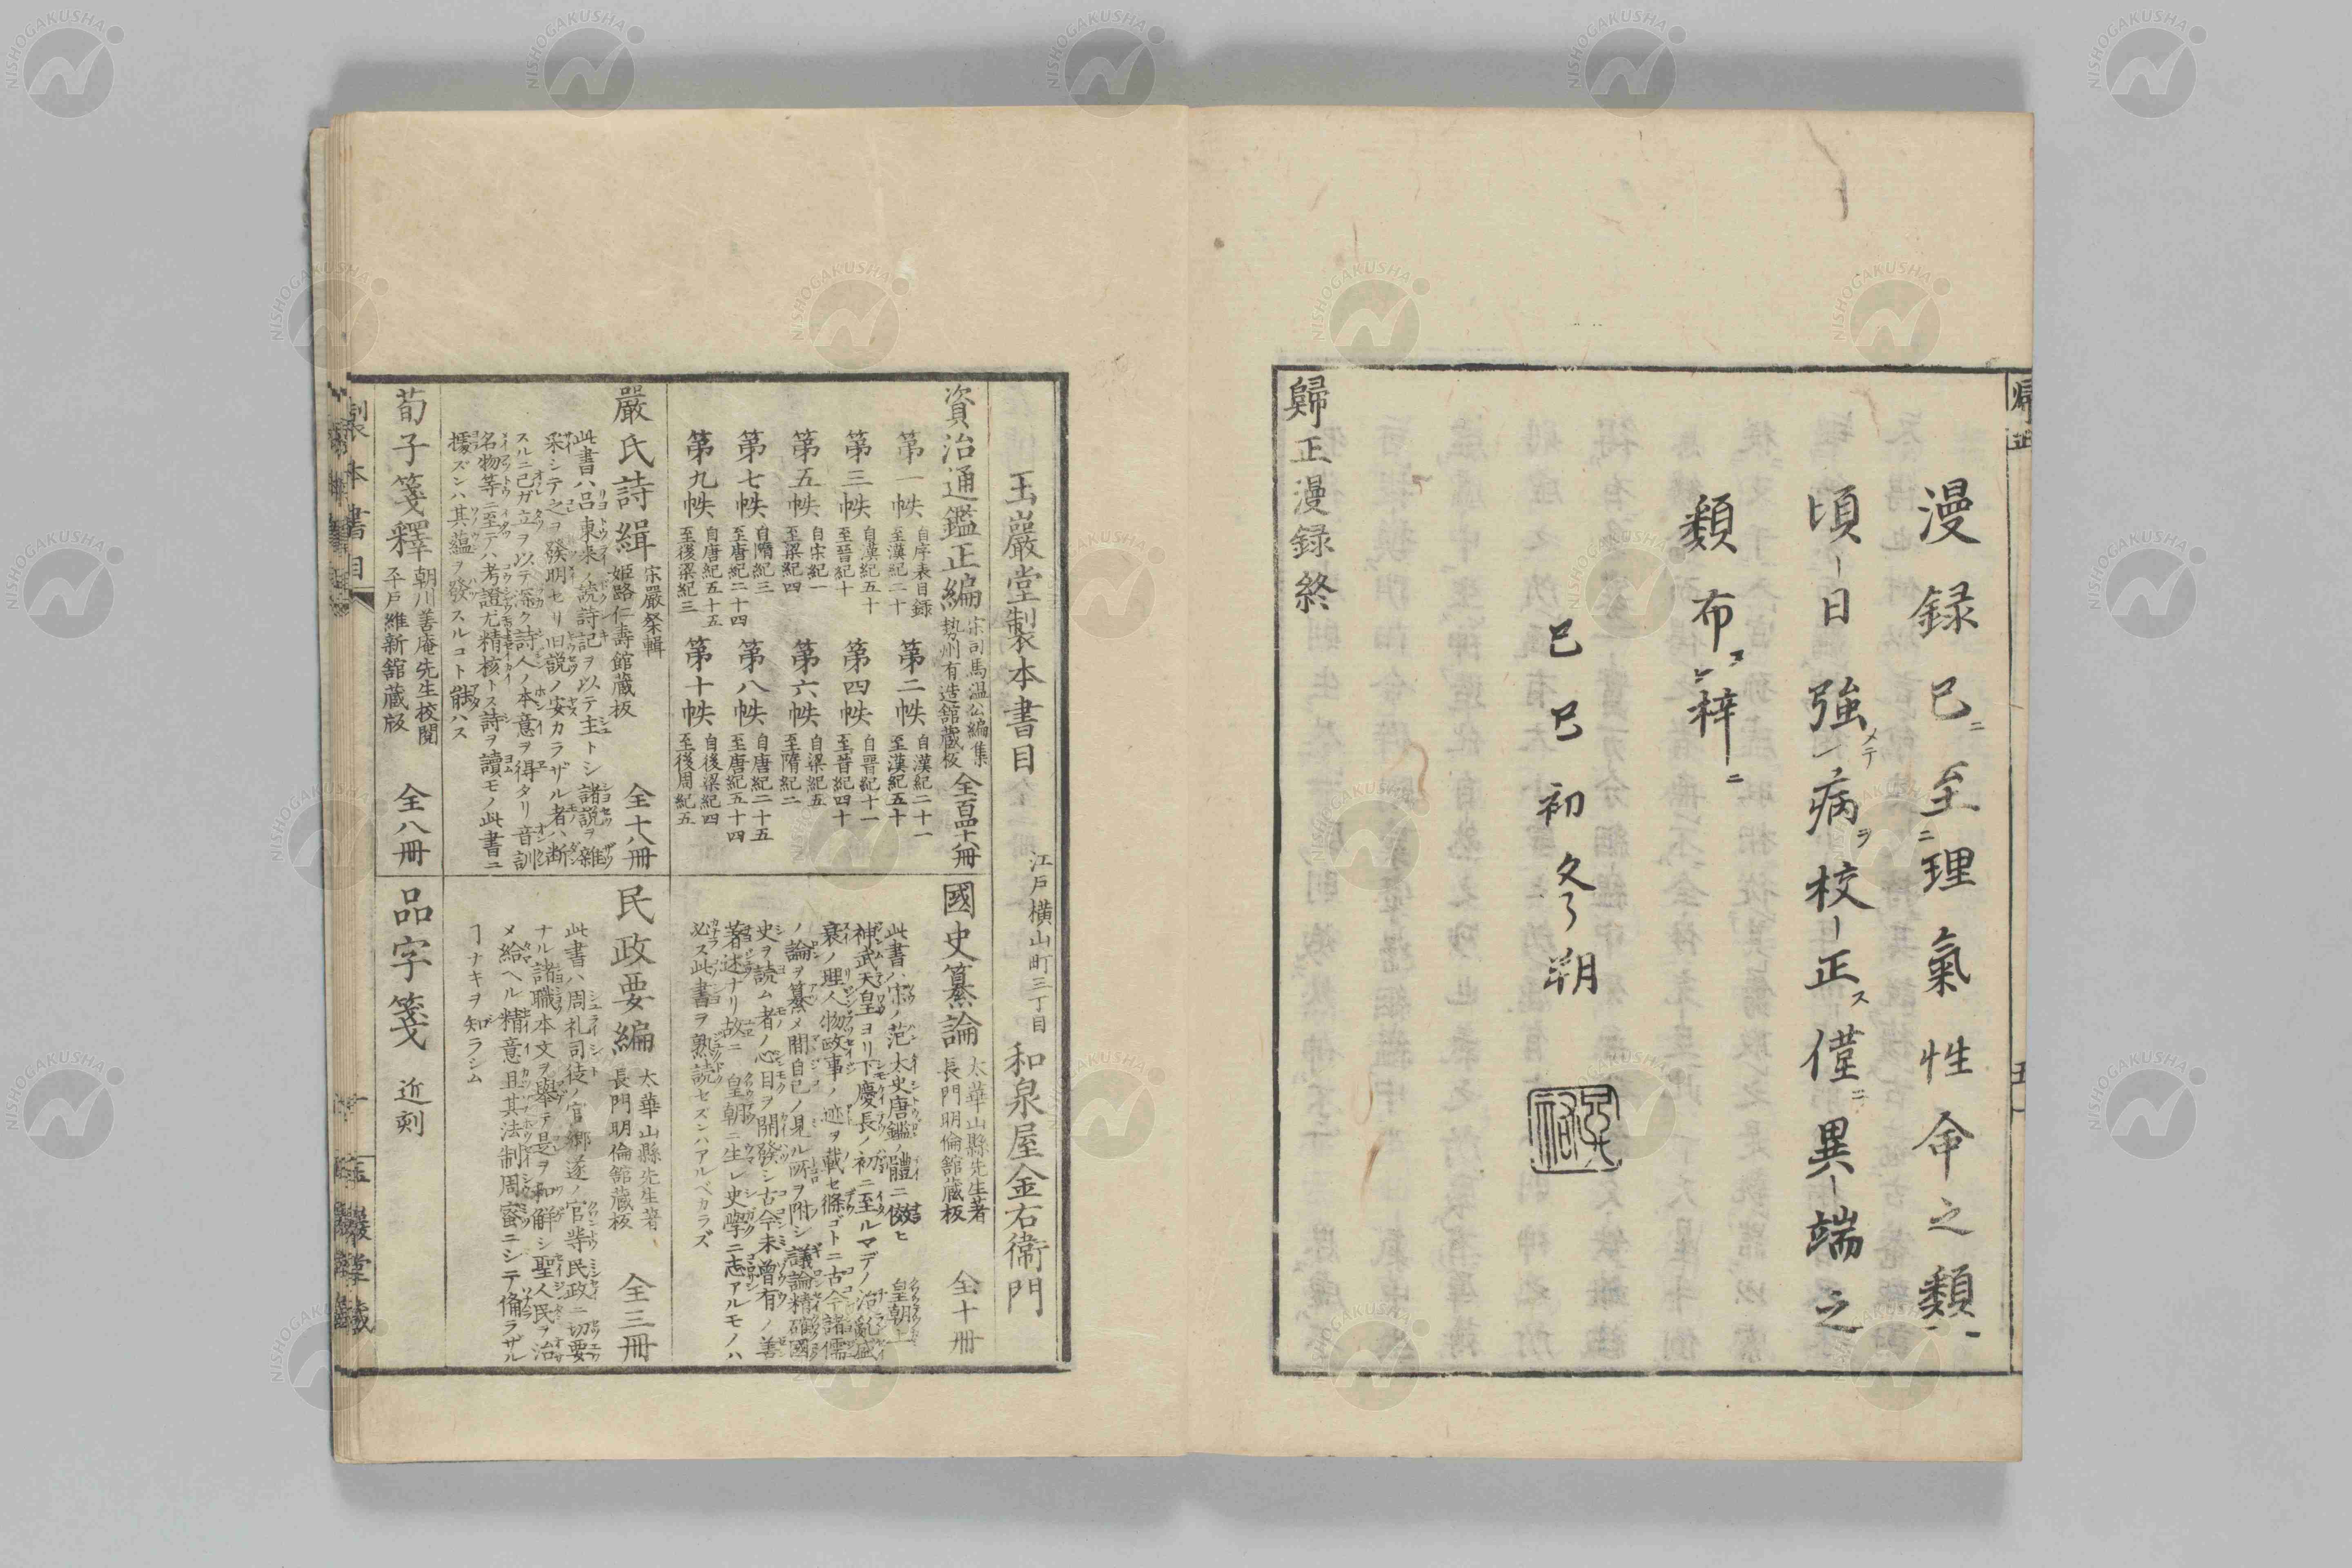 漫録已ニ至ニ理氣性命之類一
頃日強メテ病ヲ校正ス僅ニ異端之
類布ス梓ニ
己巳初冬朔
歸正漫録終
玉巖堂製本書目 江戸横山町三丁目 和泉屋金右衞門
資治通鑑正編 宋司馬温公編集 勢州有造舘蔵板 全百四十八冊
第一帙 自序表目録 至漢紀二十
第二帙 自漢紀二十一 至漢紀五十
第三帙 自漢紀五十 至晉紀十
第四帙 自晋紀十一 至晋紀四十
第五帙 自宋紀一 至梁紀四
第六帙 自梁紀五 至隋紀二
第七帙 自隋紀三 至唐紀二十四
第八帙 自唐紀二十五 至唐紀五十四
第九帙 自唐紀五十五 至後梁紀三
第十帙 自後梁紀四 至後周紀五
國史纂論 太華山縣先生著 長門明倫舘蔵板 全十冊
此書ハ宋ノ范太史唐鑑ノ體ニ傚ヒ 皇朝上
神武天皇ヨリ下慶長ノ初ニ至ルマデノ治亂盛
衰ノ理人物政事ノ迹ヲ載セ條ゴトニ古今諸儒
ノ論ヲ纂メ間自己ノ見ル所ヲ附シ議論精確國
史ヲ読ム者ノ心目ヲ開發シ古今未曾有ノ善
著述ナリ故ニ 皇朝ニ生レ史學ニ志アルモノハ
必ス此書ヲ熟読セズンハアルベカラズ
嚴氏詩緝 宋嚴粲輯 姫路仁壽館蔵板 全十八冊
此書ハ呂東来ノ読詩記ヲ以テ主トシ諸説ヲ雜
采シテ之ヲ發明セリ旧説ノ安カラザル者ハ断
スルニ己ガ立ヲ以テ深ク詩人ノ本意ヲ得タリ音訓
名物等ニ至テハ考證尤精核トス詩ヲ讀モノ此書ニ
據ズンハ其蘊ヲ發スルコト能ハス
民政要編 太華山縣先生著 長門明倫舘蔵板 全三冊
此書ハ周礼司徒ノ官郷遂ノ官等民政ニ切要
ナル諸職本文ヲ舉テ是ヲ和解シ聖人民ヲ治
メ給ヘル精意且其法制周密ニシテ偹ラザル
ヿナキヲ知ラシム
荀子箋釋 朝川善庵先生校閲 平戸維新舘蔵版 全八冊
品字箋 近刻
製本書目
NISHOGAKUSHA